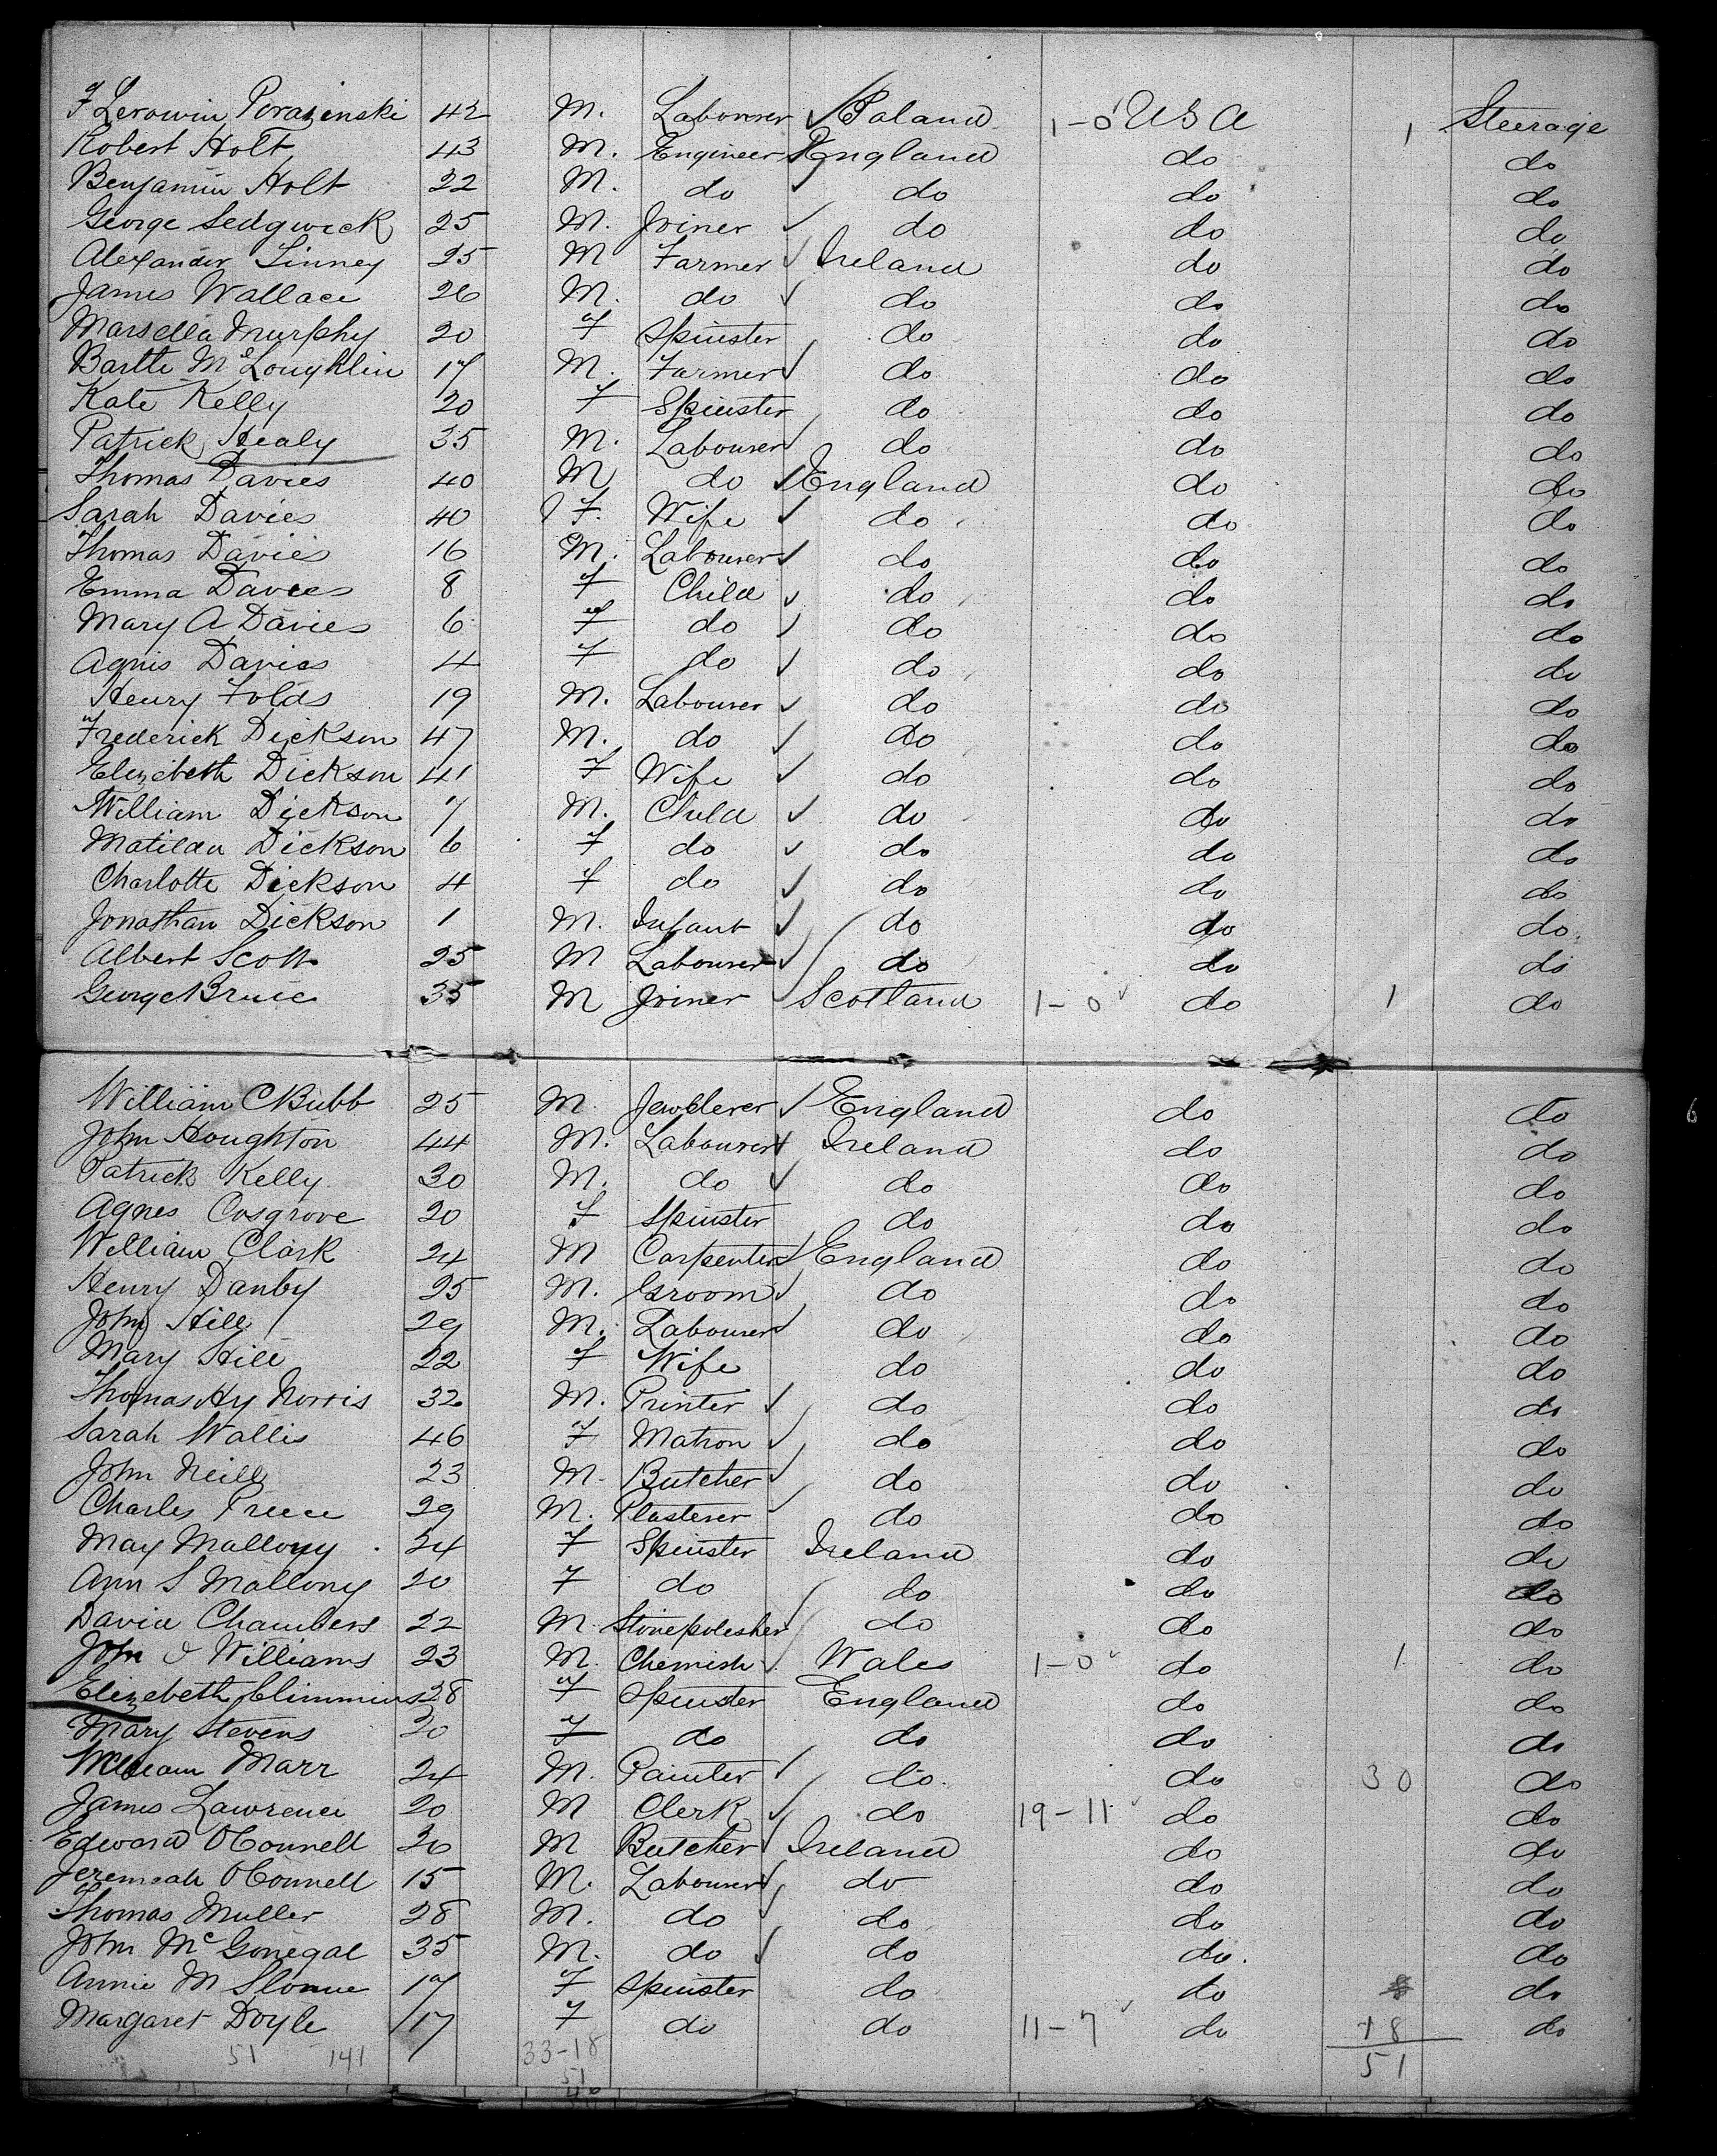 F Lerowin Porazinski 42 M. Labourer Poland 1-0 USA 1 Steerage
Robert Holt 43 M. Engineer England do do
Benjamin Holt 22 M. do do do do
George Sedgwick 25 M. Joiner do do do
Alexander Linney 25 M Farmer Ireland do do
James Wallace 26 M. do do do do
Marsella Murphy 20 F Spinster do do do
Bartle Mc Loughlin 17 M. Farmer do do do
Kate Kelly 20 F Spinster do do do
Patrick Healy 35 M. Labourer do do do
Thomas Davies 40 M do England do do
Sarah Davies 40 F. Wife do do do
Thomas Davies 16 M. Labourer do do do
Emma Davies 8 F Child do do do
Mary A Davies 6 F do do do do
Agnis Davies 4 F do do do do
Henry Folds 19 M. Labourer do do do
Frederick Dickson 47 M. do do do do
Elizebeth Dickson 41 F Wife do do do
William Dickson 7 M. Child do do do
Matilda Dickson 6 F do do do do
Charlotte Dickson 4 F do do do do
Jonathan Dickson 1 M. Infant do do do
Albert Scott 25 M Labourer do do do
George Bruce 35 M Joiner Scotland 1-0 do 1 do
William C Bubb 25 M Jewelerer England do do
6
John Houghton 44 M. Labourer Ireland do do
Patrick Kelly 30 M. do do do do
Agnes Cosgrove 20 F Spinster do do do
William Clark 24 M Carpenter England do do
Henry Danby 25 M. Groom do do do
John Hill 29 M. Labourer do do do
Mary Hill 22 F Wife do do do
Thomas Hy Norris 32 M. Printer do do do
Sarah Wallis 46 F Matron do do do
John Neill 23 M. Butcher do do do
Charles Preece 29 M. Plasterer do do do
May Mallony 24 F Spinster Ireland do do
Ann S Mallony 20 F do do do do
David Chambers 22 M Stonepolesher do do do
John J Williams 23 M. Chemist Wales 1-0 do 1 do
Elizebeth Climmins 28 F Spinster England do do
Mary Stevens 20 F do do do do
William Marr 24 M. Painter do do 30 do
James Lawrence 20 M Clerk do 19-11 do do
Edward OConnell 20 M Butcher Ireland do do
Jeremiah OConnell 15 M. Labourer do do do
Thomas Muller 28 M. do do do do
John Mc Gonegal 35 M. do do do do
Annie M Slowne 17 F Spinster do do do
Margaret Doyle 17 F do do 11-7 do 18 do
51 141 33-18 51
51